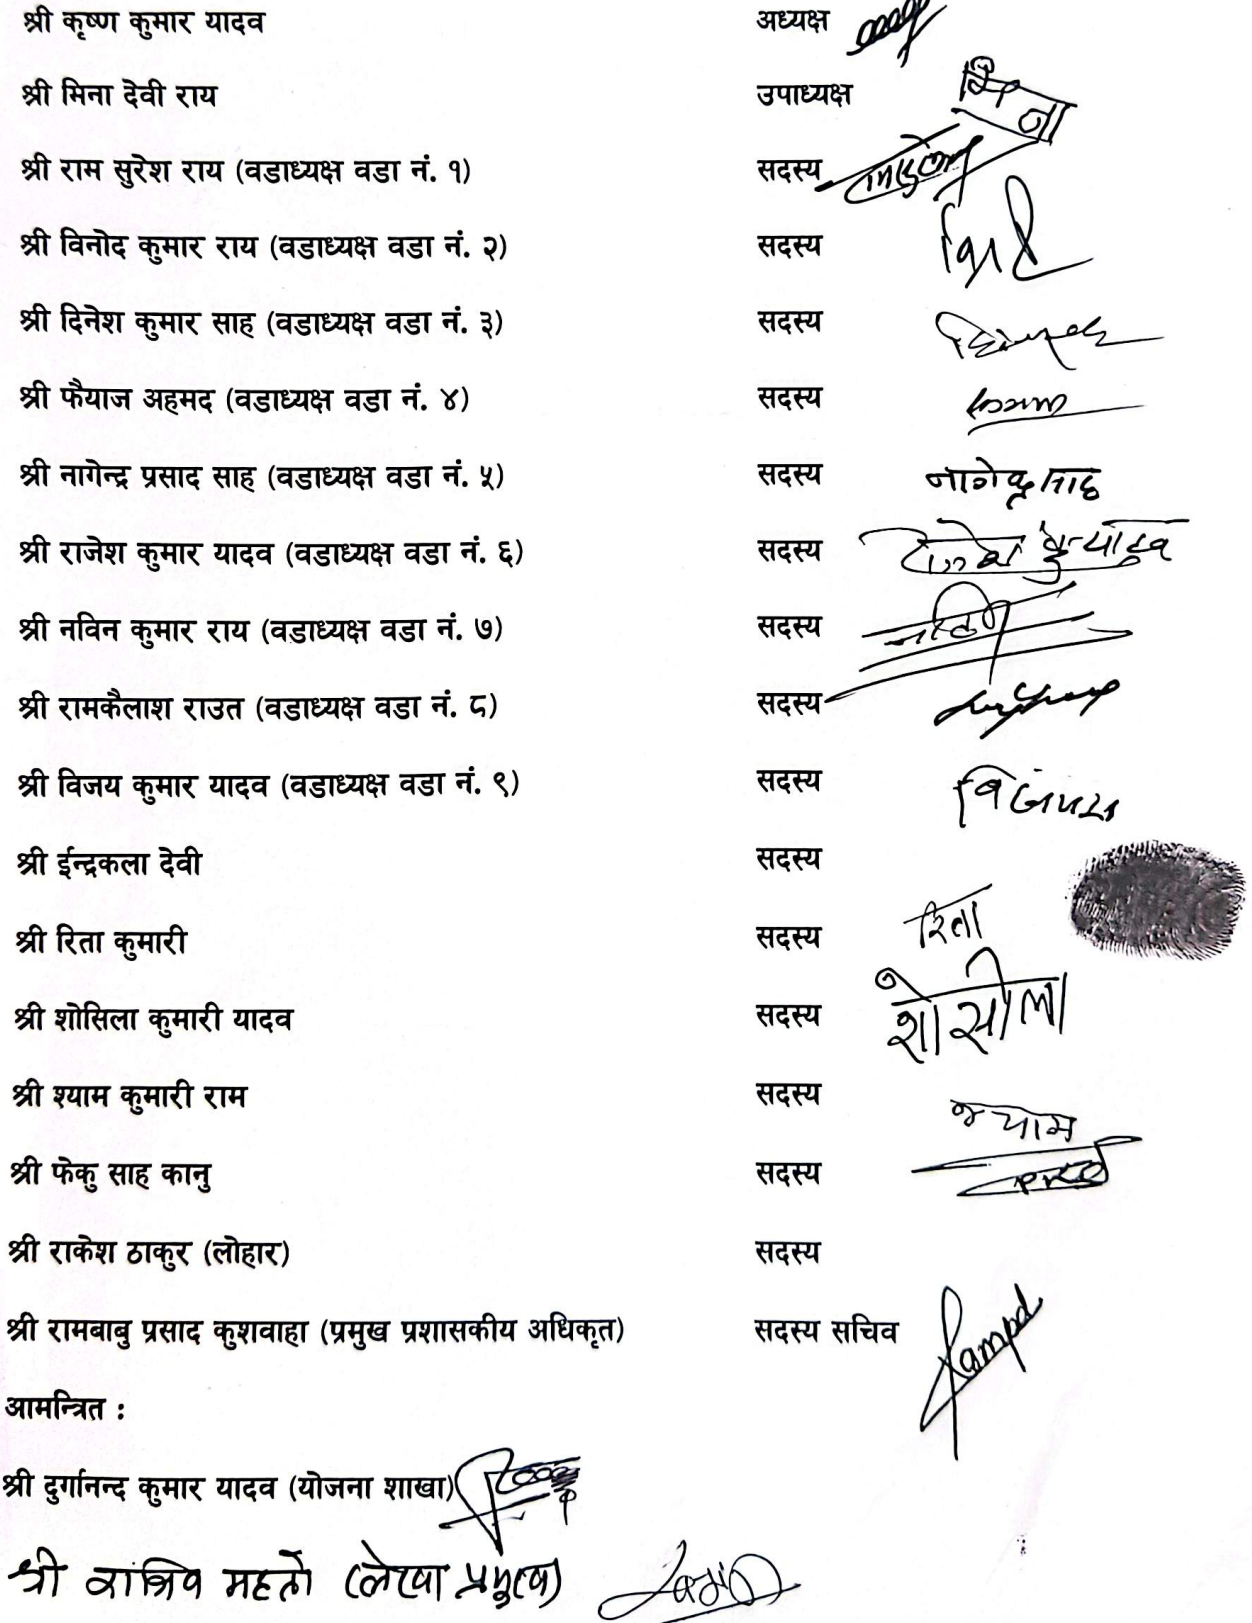 श्री कृष्ण कुमार यादव अध्यक्ष
श्री मिना देवी राय उपाध्यक्ष मिना
श्री राम सुरेश राय (वडाध्यक्ष वडा नं. १) सदस्य
श्री विनोद कुमार राय (वडाध्यक्ष वडा नं. २) सदस्य
श्री दिनेश कुमार साह (वडाध्यक्ष वडा नं. ३) सदस्य
श्री फैयाज अहमद (वडाध्यक्ष वडा नं. ४) सदस्य
श्री नागेन्द्र प्रसाद साह (वडाध्यक्ष वडा नं. ५) सदस्य नागेन्द्र साह
श्री राजेश कुमार यादव (वडाध्यक्ष वडा नं. ६) सदस्य राजेश कु यादव
श्री नविन कुमार राय (वडाध्यक्ष वडा नं. ७) सदस्य
श्री रामकैलाश राउत (वडाध्यक्ष वडा नं. ८) सदस्य
श्री विजय कुमार यादव (वडाध्यक्ष वडा नं. ९) सदस्य
श्री ईन्द्रकला देवी सदस्य
श्री रिता कुमारी सदस्य रिता
श्री शोसिला कुमारी यादव सदस्य शोसीला
श्री श्याम कुमारी राम सदस्य श्याम
श्री फेकु साह कानु सदस्य
श्री राकेश ठाकुर (लोहार) सदस्य
श्री रामबाबु प्रसाद कुशवाहा (प्रमुख प्रशासकीय अधिकृत) सदस्य सचिव
आमन्त्रित :
श्री दुर्गानन्द कुमार यादव (योजना शाखा)
श्री महतो (लेखा प्रमुख)